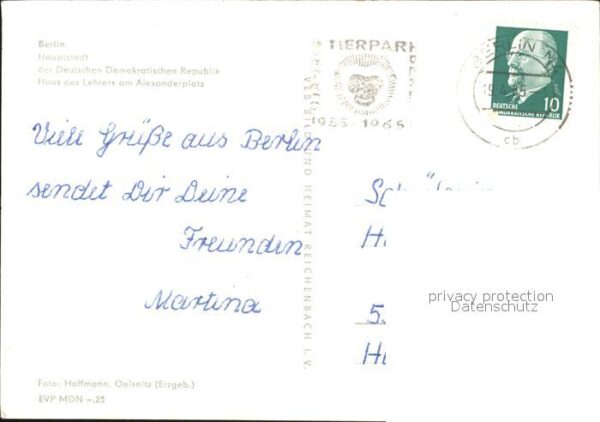 Berlin
Hauptstadt
der Deutschen Demokratischen Republik
Haus des Lehrers am Alexanderplatz
TIERPARK
BERLIN
1955-1965
BERLIN
cb
10
DEUTSCHE
DEMOKRATISCHE REPUBLIK
Viele Grüße aus Berlin
sendet Dir Deine
Freundin
Martina
VEB BILD UND HEIMAT REICHENBACH I. V.
5
privacy protection
Datenschutz
Foto: Hoffmann, Oelsnitz (Erzgeb.)
EVP MDN -,25